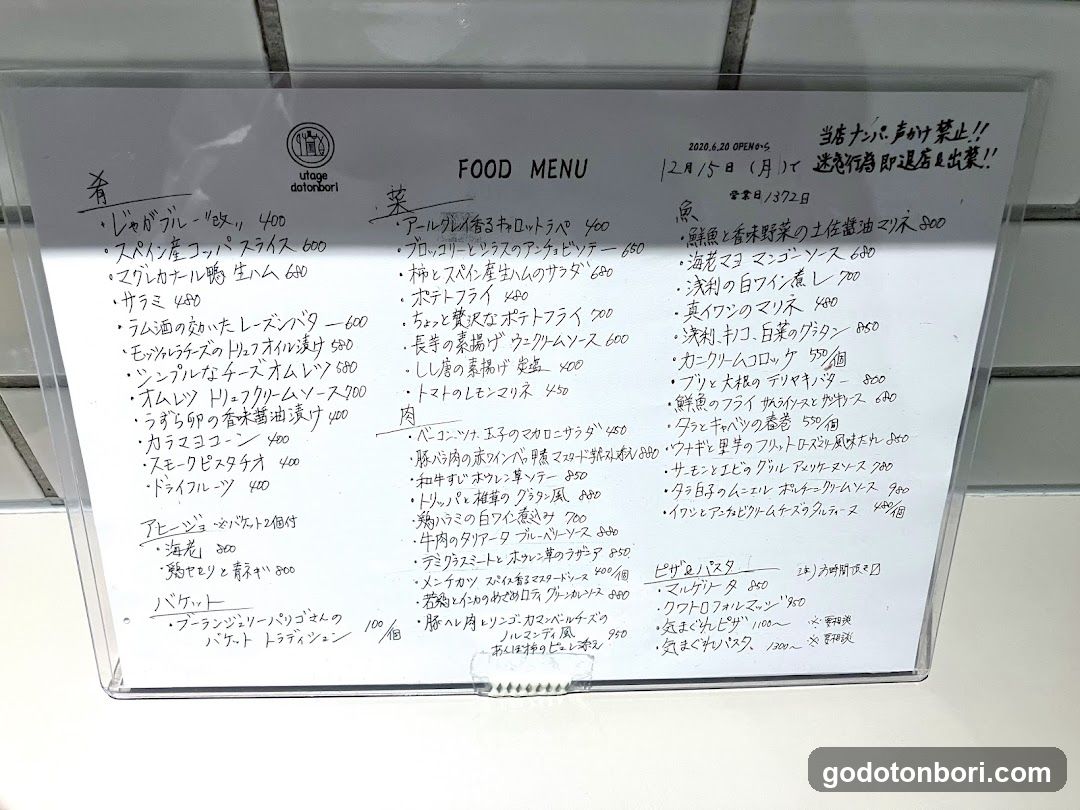 utage
dotonbori
FOOD MENU
2020.6.20 OPENから
12月15日(月)で
営業日1372日
当店ナンパ、声かけ禁止!!
迷惑行為即退店&出禁!!
肴
・じゃがブルー"改" 400
・スペイン産コッパ スライス 600
・マグレカナール鴨 生ハム 680
・サラミ 480
・ラム酒の効いたレーズンバター 600
・モッツァレラチーズのトリュフオイル漬け 580
・シンプルなチーズオムレツ 580
・オムレツ トリュフクリームソース 700
・うずら卵の香味醤油漬け 400
・カラマヨコーン 400
・スモークピスタチオ 400
・ドライフルーツ 400
アヒージョ ※バケット2個付
・海老 800
・鶏セセリと青ネギ 800
バケット
・ブーランジュリーパリゴさんの
バケット トラディション 100/個
菜
・アールグレイ香るキャロットラペ 400
・ブロッコリーとシラスのアンチョビソテー 650
・柿とスペイン産生ハムのサラダ 680
・ポテトフライ 480
・ちょっと贅沢なポテトフライ 700
・長芋の素揚げ ウニクリームソース 600
・しし唐の素揚げ 炭塩 400
・トマトのレモンマリネ 450
肉
・ベーコン、ツナ、玉子のマカロニサラダ 450
・豚バラ肉の赤ワインベッ甲煮 マスタードポテト添え 880
・和牛すじ ホウレン草ソテー 850
・トリッパと椎茸のグラタン風 880
・鶏ハラミの白ワイン煮込み 700
・牛肉のタリアータ ブルーベリーソース 880
・デミグラスミートとホウレン草のラザニア 850
・メンチカツ スパイス香るマスタードソース 400/個
・若鶏とインカのめざめロティ グリーンカレソース 880
・豚ヘレ肉とリンゴ・カマンベールチーズの
ノルマンディ風
あんぽ柿のピュレ添え 950
魚
・鮮魚と香味野菜の土佐醤油マリネ 800
・海老マヨ マンゴーソース 680
・浅利の白ワイン煮し 700
・真イワシのマリネ 480
・浅利、キノコ、白菜のグラタン 850
・カニクリームコロッケ 550/個
・ブリと大根のテリヤキバター 800
・鮮魚のフライ サムライソースとザジキソース 680
・タラとキャベツの春巻 550/個
・ウナギと里芋のフリット ローズマリー風味たれ 850
・サーモンとエビのグリル アメリケーヌソース 780
・タラ白子のムニエル ポルチーニクリームソース 980
・イワシとアンチョビクリームチーズのタルティーヌ 480/個
ピザ&パスタ 注)お時間頂きます
・マルゲリータ 850
・クワトロフォルマッジ 950
・気まぐれピザ 1100〜 ※要相談
・気まぐれパスタ 1300〜 ※要相談
godotonbori.com